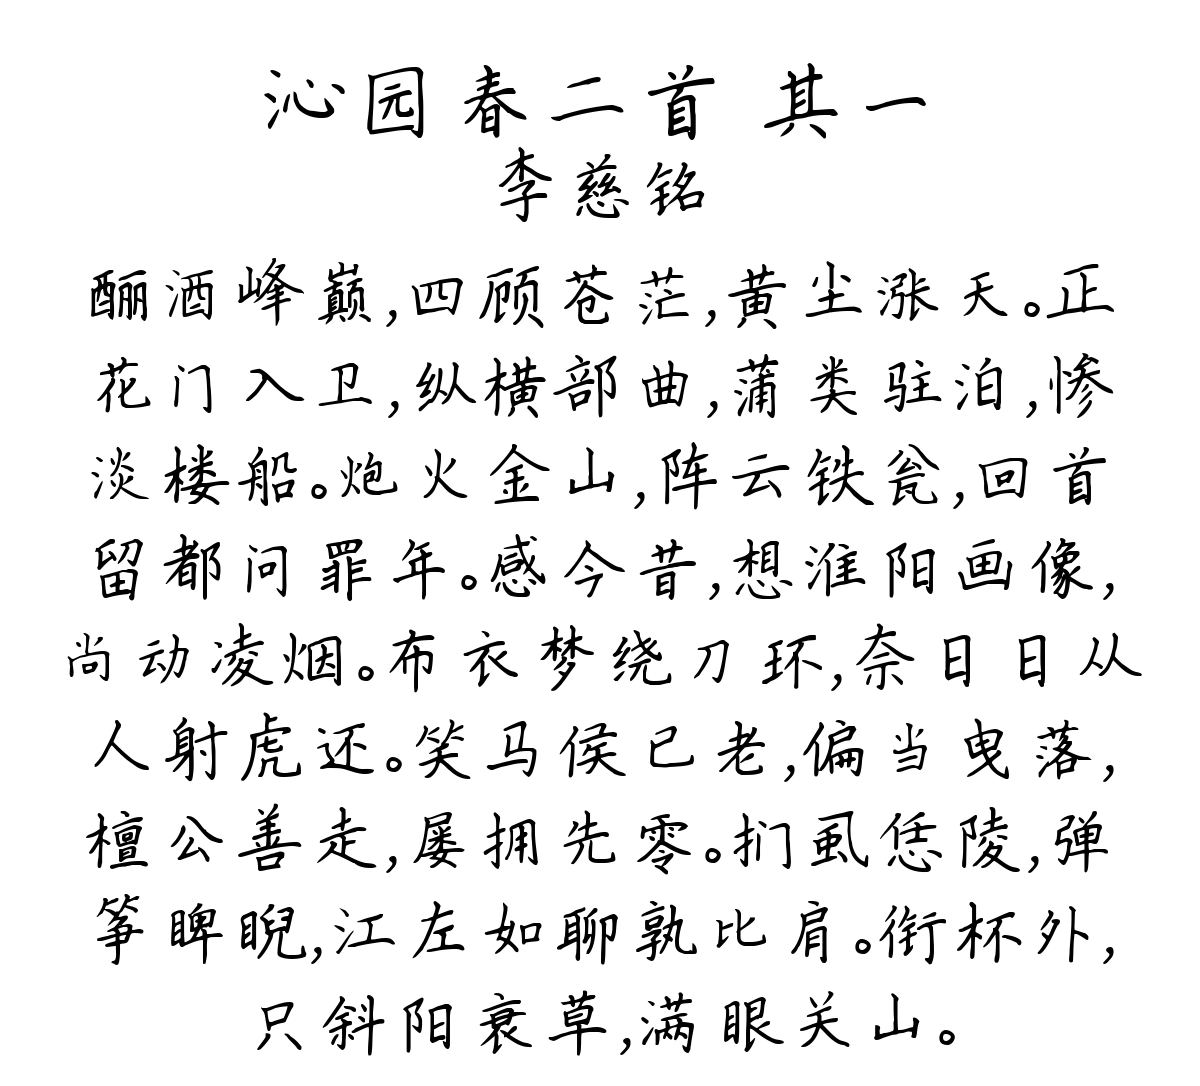 沁园春二首 其一
李慈铭
酾酒峰巅,四顾苍茫,黄尘涨天。正
花门入卫,纵横部曲,蒲类驻泊,惨
淡楼船。炮火金山,阵云铁瓮,回首
留都问罪年。感今昔,想淮阳画像,
尚动凌烟。布衣梦绕刀环,奈日日从
人射虎还。笑马侯已老,偏当曳落,
檀公善走,屡拥先零。扪虱恁陵,弹
筝睥睨,江左如聊孰比肩。衔杯外,
只斜阳衰草,满眼关山。